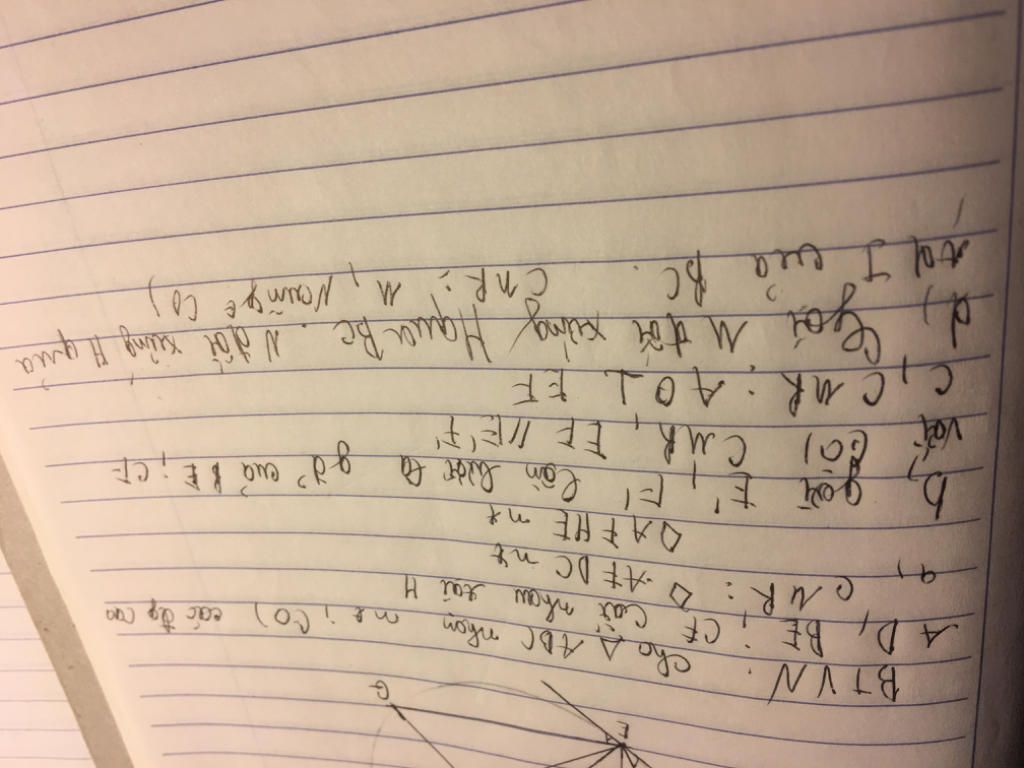 G
E
BTVN: cho Δ ABC nhọn nt; (O) các đg cao
AD, BE; CF cắt nhau tại H
a, CMR: ◊ AFDC nt
◊ AFHE nt
b, gọi E', F' lần lượt là gđ² của BE; CF
với (O) CMR, EF // E'F'
c, CMR: AO ⊥ EF
d, Gọi M đối xứng H qua BC. N đối xứng H qua
tđ I của BC. CMR: M, N cùng ∈ (O)